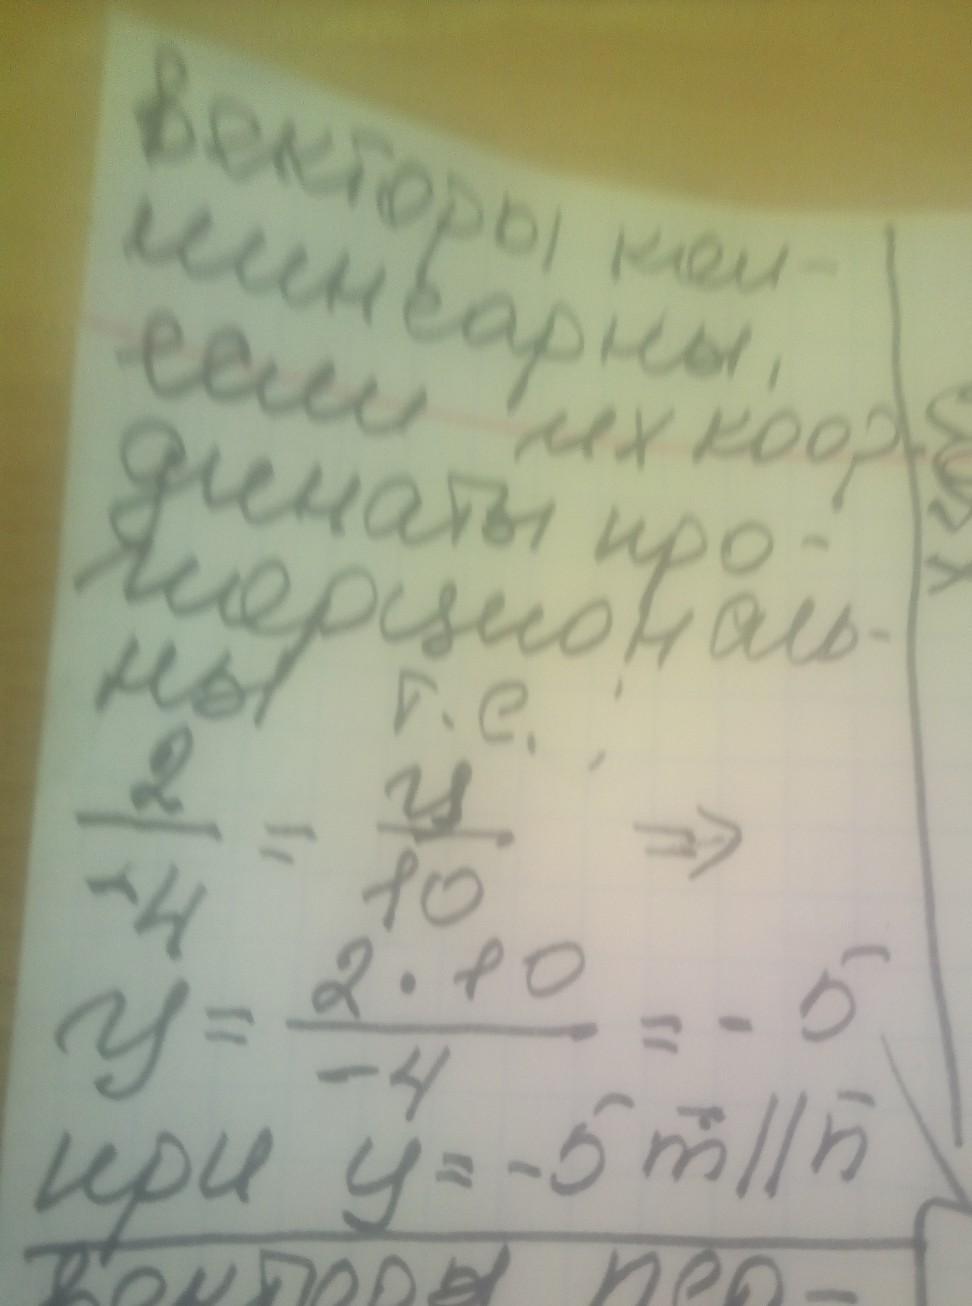 Векторы кол-
линеарны,
если их коор
динаты про-
порциональ-
ны т.е.
2/-4 = y/10 ⇒
y = 2·10/-4 = -5
при y = -5 m̄ || n̄
Векторы пер-